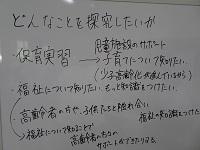 どんなことを探究したいか
保育実習 → 児童施設のサポート
子育てについて知りたい。
(少子高齢化が進んでいるから)
・福祉について知りたい。もっと知識をつけたい。
高齢者の方や、子供たちと触れ合い
福祉の知識をつけたい
福祉について知ることで
高齢者の方の
サポートができたりする。